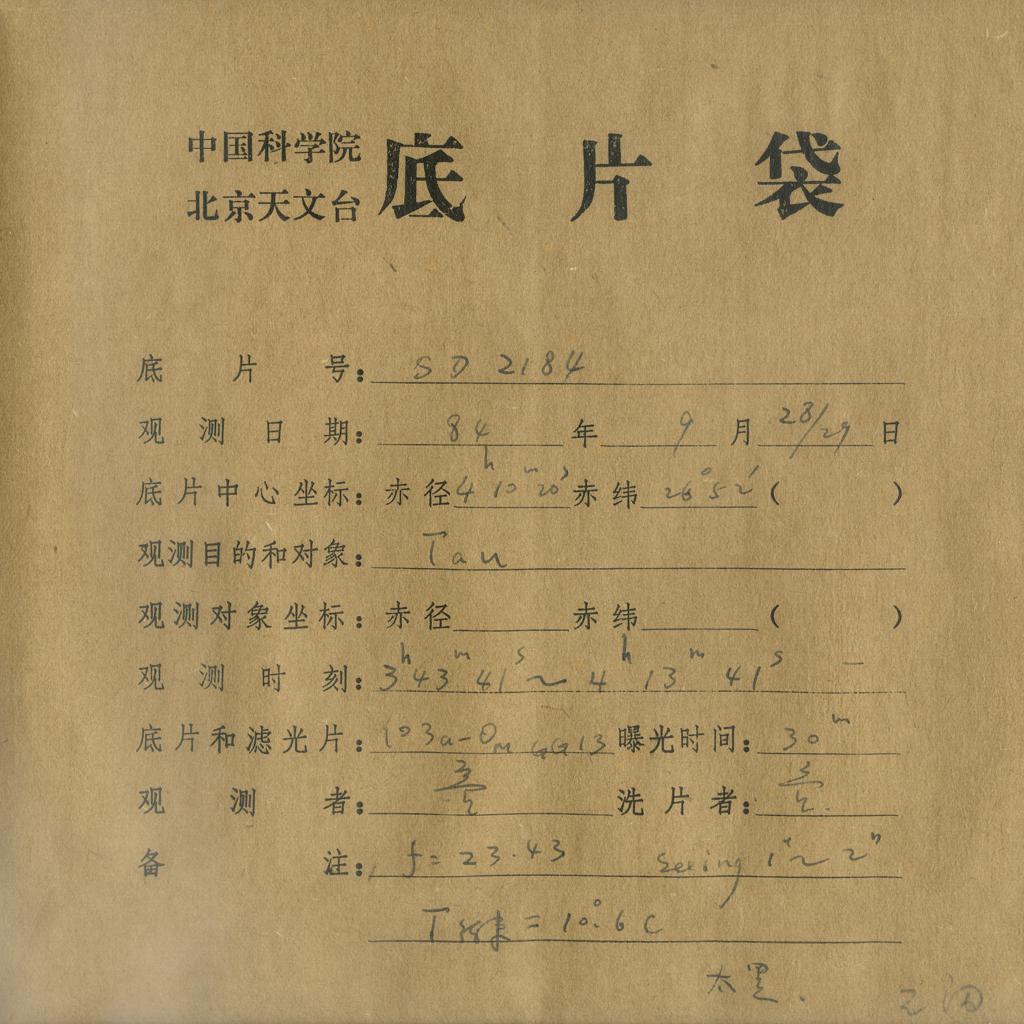 中国科学院
北京天文台
底片袋
底片号: SD 2184
观测日期: 84 年 9 月 28/29 日
底片中心坐标: 赤径 4h 10m 20s 赤纬 26°52′ ( )
观测目的和对象: Tau
观测对象坐标: 赤径 赤纬 ( )
观测时刻: 3h 43m 41s ~ 4h 13m 41s —
底片和滤光片: 103a-O GG13 曝光时间: 30m
观测者: 洗片者:
备注: f=23.43 seeing 1″~2″
T = 10°.6 C
太黑.